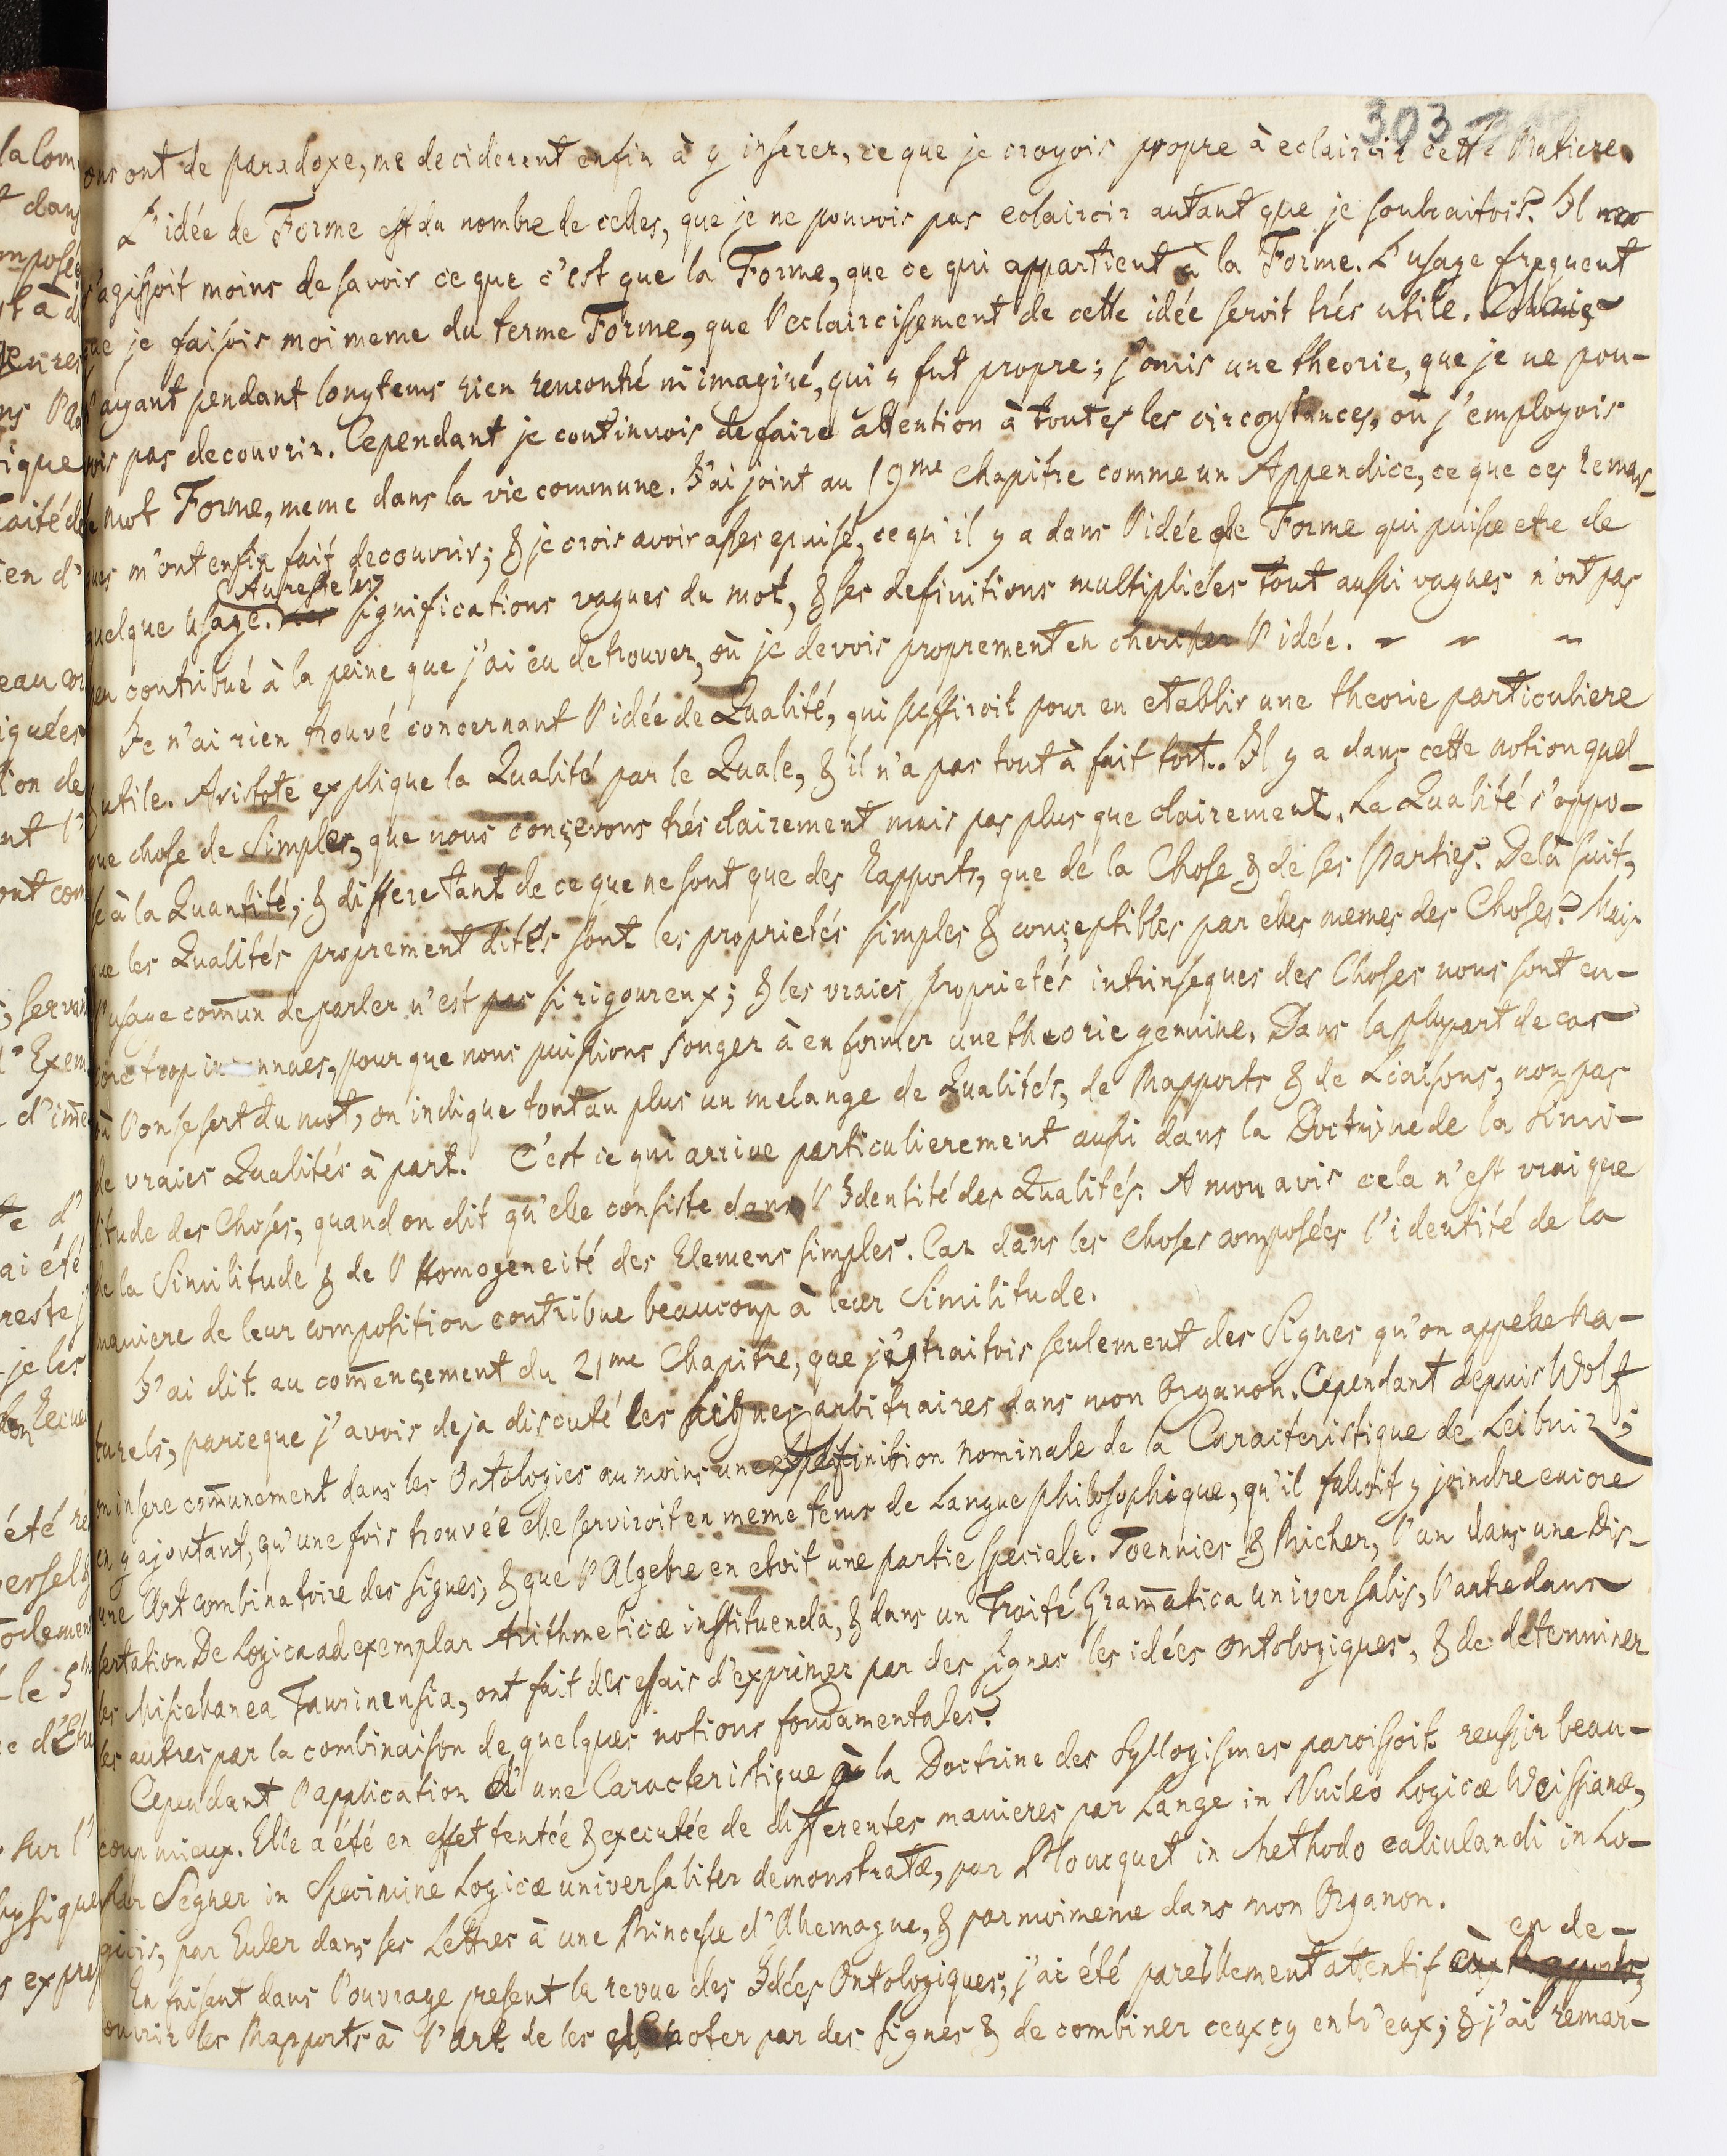 303
ons ont de paradoxe, me deciderent enfin à y inserer, ce que je croyois propre à eclaircir cette Matiere.
L'idée de Forme est du nombre de celles, que je ne pouvois pas eclaircir autant que je souhaitois. Il
s'agissoit moins de savoir ce que c'est que la Forme, que ce qui appartient à la Forme. L'usage frequent
que je faisois moi meme du terme Forme, que l'eclaircissement de cette idée seroit trés utile.
n'ayant pendant longtems rien rencontré ni imaginé, qui y fut propre; j'omis une theorie, que je ne pou-
vois pas decouvrir. Cependant je continuois de faire attention à toutes les circonstances, où j'employois
le mot Forme, meme dans la vie commune. J'ai joint au 19me Chapitre comme un Appendice, ce que ces remar-
ques m'ont enfin fait decouvrir; & je crois avoir asses epuisé, ce qu'il y a dans l'idée de Forme qui puisse etre de
quelque usage. Au reste les significations vagues du mot, & ses definitions multipliées tout aussi vagues n'ont pas
peu contribué à la peine que j'ai eu de trouver, où je devois proprement en chercher l'idée. - - -
Je n'ai rien trouvé concernant l'idée de Qualité, qui suffiroit pour en etablir une theorie particuliere
& utile. Aristote explique la Qualité par le Quale, & il n'a pas tout à fait tort. Il y a dans cette notion quel-
que chose de simple, que nous conçevons trés clairement mais pas plus que clairement. La Qualité s'oppo-
se à la Quantité; & differe tant de ce que ne sont que des Rapports, que de la Chose & de ses Parties. Delà suit,
que les Qualités proprement dites sont les proprietés simples & conçeptibles par elles memes des Choses. Mais
l'usage com̄un de parler n'est pas si rigoureux; & les vraies proprietés intrinseques des Choses nous sont en-
core trop inconnues, pour que nous puissions songer à en former une theorie genuine. Dans la plupart de cas
où l'on se sert du mot, on indique tout au plus un melange de Qualités, de Rapports & de Liaisons, non pas
de vraies Qualités à part. C'est ce qui arrive particulierement aussi dans la Doctrine de la Simi-
litude des Choses, quand on dit qu'elle consiste dans l'Identité des Qualités. A mon avis cela n'est vrai que
de la Similitude & de l'Homogeneité des Elemens simples. Car dans les choses composées l'identité de la
maniere de leur composition contribue beaucoup à leur Similitude.
J'ai dit au com̄ençement du 21me Chapitre, que j'y traitois seulement des Signes qu'on appelle na-
turels, parceque j'avois deja discuté les signes arbitraires dans mon Organon. Cependant depuis Wolf
on insere com̄unement dans les Ontologies au moins une definition nominale de la Caracteristique de Leibniz;
en y ajoutant, qu'une fois trouvée elle serviroit en meme tems de Langue philosophique, qu'il falloit y joindre encore
une Art combinatoire des signes, & que l'Algebre en etoit une partie speciale. Toennies & Richer, l'un dans une Dis-
sertation De Logica ad exemplar Arithmeticæ instituenda, & dans un Traité Gram̄atica universalis, l'autre dans
les Miscellanea Taurinensia, ont fait des essais d'exprimer par des signes les idées ontologiques, & de determiner
les autres par la combinaison de quelques notions fondamentales.
Cependant l'application d'une Caracteristique à la Doctrine des Syllogismes paroissoit reussir beau-
coup mieux. Elle a été en effet tentée & executée de differentes manieres par Lange in Nucleo Logicæ Weissianæ,
par Segner in Specimine Logicæ universaliter demonstratæ, par Ploucquet in Methodo calculandi in Lo-
gicis, par Euler dans ses Lettres à une Princesse d'Allemagne, & par moimeme dans mon Organon.
En faisant dans l'ouvrage present la revue des Idées Ontologiques, j'ai été pareillement attentif aux Rapports, en de-
couvrir les Rapports à l'art de les denoter par des signes & de combiner ceuxcy entr'eux; & j'ai remar-